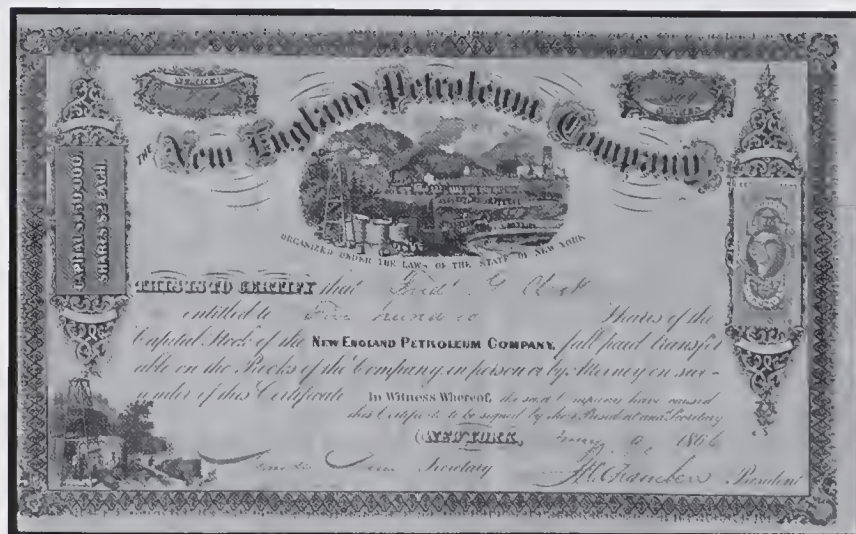 NUMBER
SHARES
THE New England Petroleum Company.
CAPITAL $150,000.
SHARES $2 EACH.
ORGANIZED UNDER THE LAWS OF THE STATE OF NEW YORK
THIS IS TO CERTIFY that Fred. G. Clark
entitled to Five hundred Shares of the
Capital Stock of the NEW ENGLAND PETROLEUM COMPANY, full paid transfer
able on the Books of the Company, in person or by Attorney on sur-
render of this Certificate. In Witness Whereof, the said Company have caused
this Certificate to be signed by their President and Secretary
NEW YORK, 1866
Secretary President